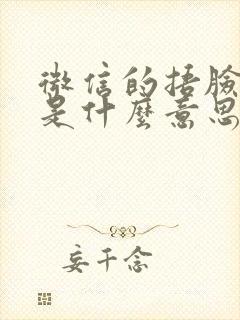 微信的捂臉
是什麼意思
妄千念